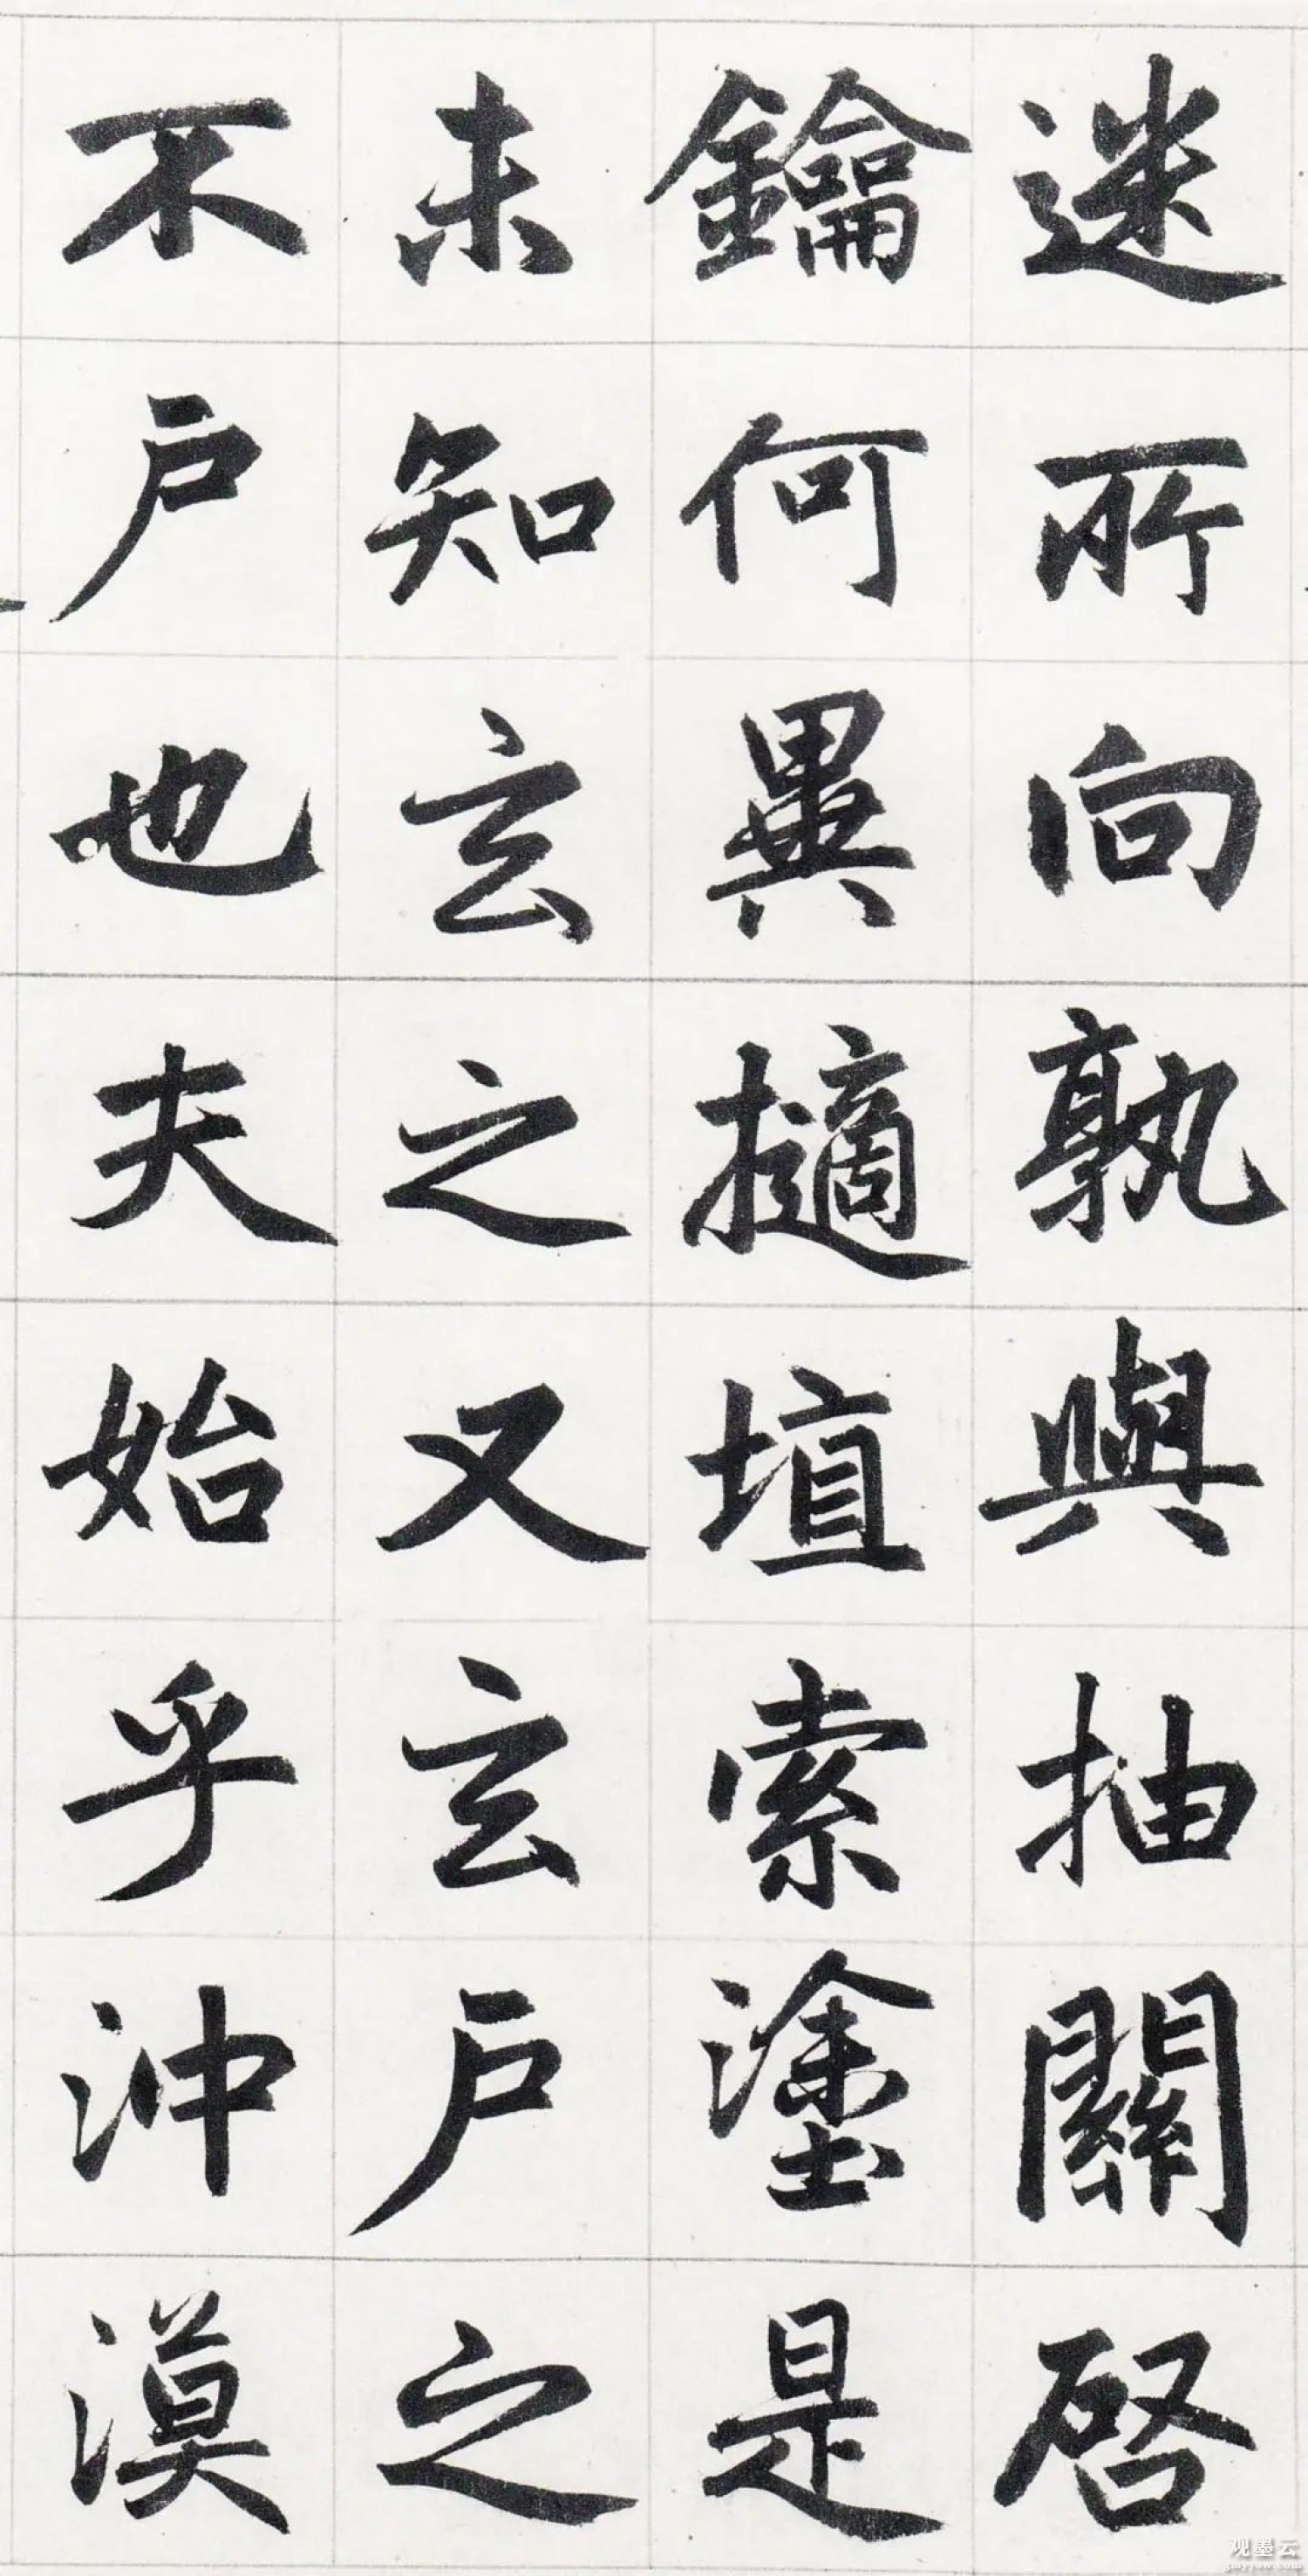 迷所向孰與抽關啓
鑰何異擿埴索塗是
未知玄之又玄户之
不户也夫始乎沖漠
观墨云